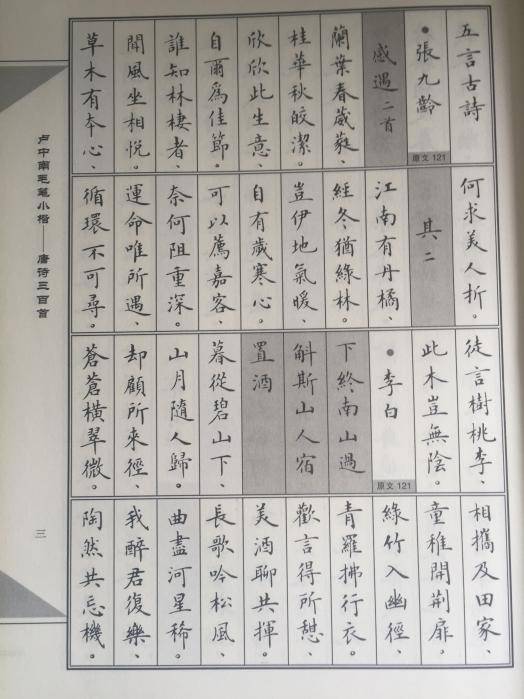 五言古詩
●張九齡
原文121
感遇二首
蘭葉春葳蕤、
桂華秋皎潔。
欣欣此生意、
自爾爲佳節。
誰知林棲者、
聞風坐相悅。
草木有本心、
何求美人折。
其二
江南有丹橘、
經冬猶綠林。
豈伊地氣暖、
自有歲寒心。
可以薦嘉客、
奈何阻重深。
運命唯所遇、
循環不可尋。
徒言樹桃李、
此木豈無陰。
●李白
原文121
下終南山過
斛斯山人宿
置酒
暮從碧山下、
山月隨人歸。
却顧所來徑、
蒼蒼橫翠微。
相攜及田家、
童稚開荊扉。
綠竹入幽徑、
青羅拂行衣。
歡言得所憇、
美酒聊共揮。
長歌吟松風、
曲盡河星稀。
我醉君復樂、
陶然共忘機。
卢中南毛笔小楷——唐诗三百首
三